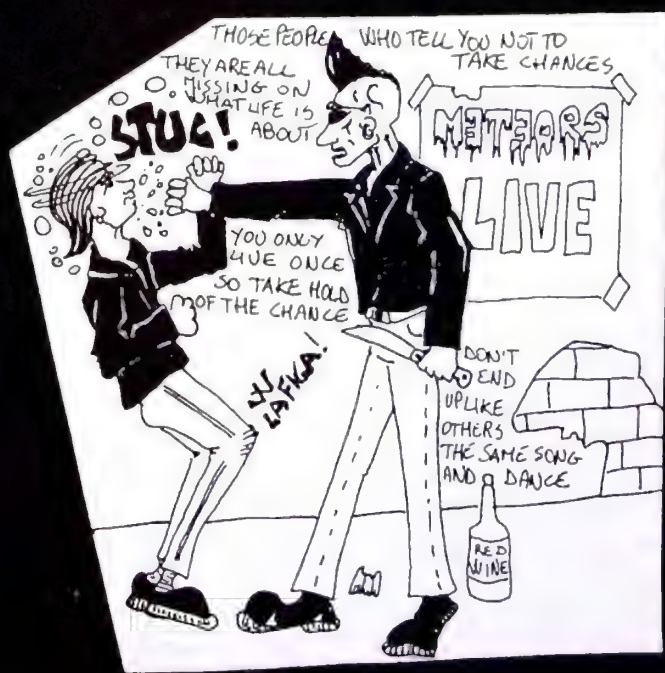 THOSE PEOPLE WHO TELL YOU NOT TO
TAKE CHANCES
THEY ARE ALL
MISSING ON
WHAT LIFE IS
ABOUT
STUG!
METEORS
LIVE
YOU ONLY
LIVE ONCE
SO TAKE HOLD
OF THE CHANCE
LAFKA!
DON'T
END
UP LIKE
OTHERS
THE SAME SONG
AND DANCE
RED
WINE